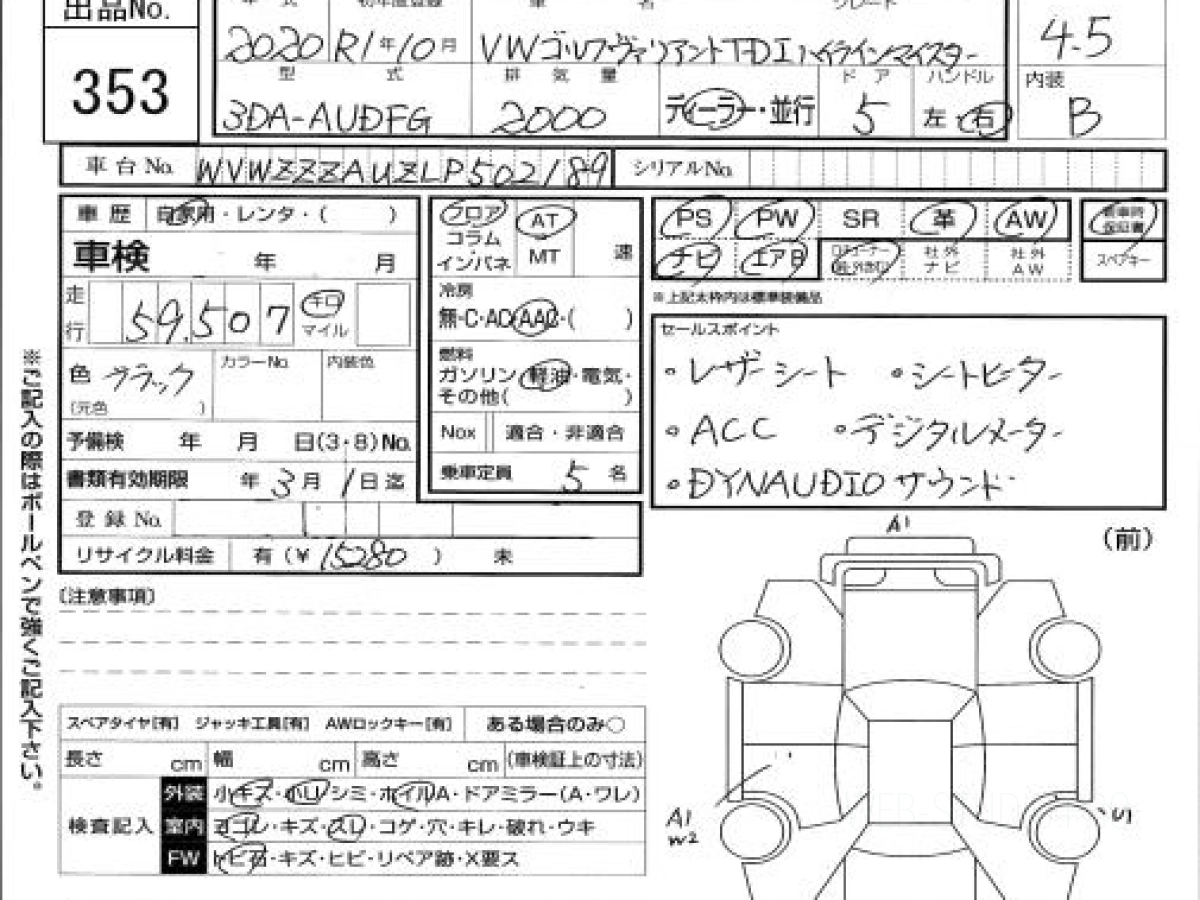 出品No.
353
年 式 初年度登録 車 名 グレード
2020 R1年10月 VWゴルフヴァリアントTDIハイラインマイスター 4.5
型 式 排 気 量 ドア ハンドル 内装
3DA-AUDFG 2000 ディーラー・並行 5 左・右 B
車台No. WVWZZZAUZLP502189 シリアルNo.
車歴 自家用・レンタ・( )
車検 年 月
走行 59,507 キロ マイル
色 ブラック カラーNo. 内装色
(元色 )
予備検 年 月 日(3・8)No.
書類有効期限 年3月1日迄
登録No.
リサイクル料金 有(¥15280 ) 未
フロア AT
コラム
インパネ MT 速
冷房
無・C・AC・AAC・( )
燃料
ガソリン・軽油・電気・
その他( )
Nox 適合・非適合
乗車定員 5 名
PS PW SR 革 AW 新車時保証書
ナビ エアB 社外ナビ 社外AW スペアキー
※上記太枠内は標準装備品
セールスポイント
・レザーシート ・シートヒーター
・ACC ・デジタルメーター
・DYNAUDIOサウンド
(注意事項)
スペアタイヤ[有] ジャッキ工具[有] AWロックキー[有] ある場合のみ○
長さ cm 幅 cm 高さ cm (車検証上の寸法)
検査記入
外装 小キズ・小凹・シミ・ホイルA・ドアミラー(A・ワレ)
室内 ヨゴレ・キズ・スレ・コゲ・穴・キレ・破れ・ウキ
FW トビ石・キズ・ヒビ・リペア跡・X要ス
※ご記入の際はボールペンで強くご記入下さい。
A1
(前)
A1
W2
U1